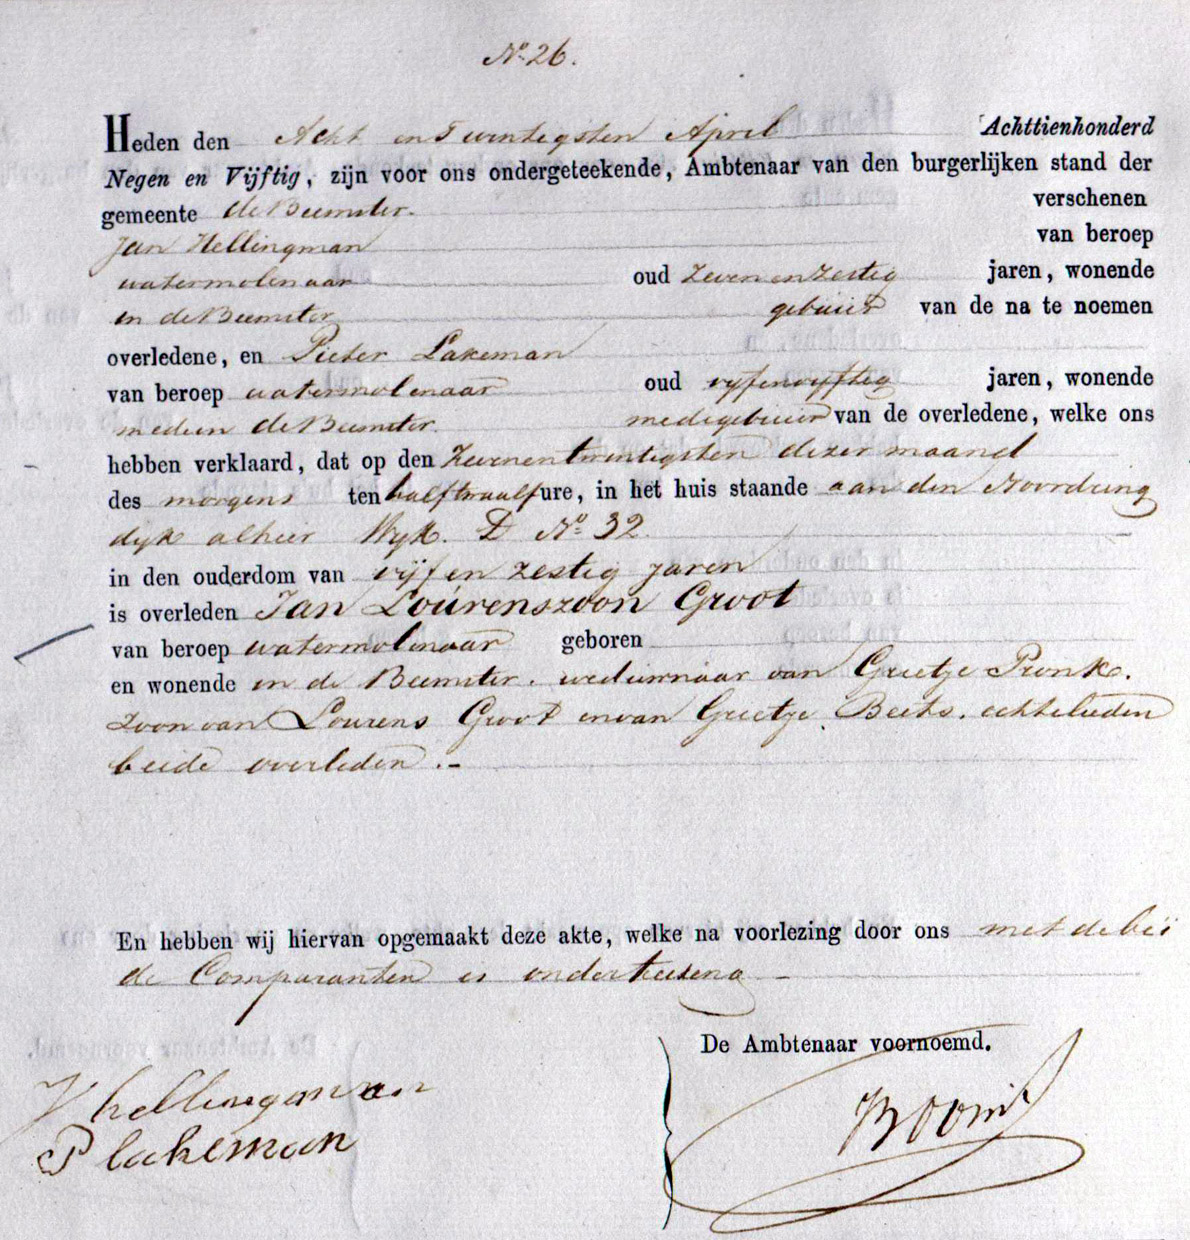 No. 26.
Heden den Acht en Twintigsten April Achttienhonderd
Negen en Vijftig, zijn voor ons ondergeteekende, Ambtenaar van den burgerlijken stand der
gemeente de Beemster. verschenen
Jan Hellingman van beroep
watermolenaar oud zeven en zestig jaren, wonende
in de Beemster gebuur van de na te noemen
overledene, en Pieter Lakeman
van beroep watermolenaar oud vyfenvyftig jaren, wonende
mede in de Beemster. medegebuur van de overledene, welke ons
hebben verklaard, dat op den Zevenentwintigsten dezer maand
des morgens ten halftwaalf ure, in het huis staande aan den Noorddring
dyk alhier Wyk. D No. 32.
in den ouderdom van vijf en zestig jaren
is overleden Jan Lourenszoon Groot
van beroep watermolenaar geboren
en wonende in de Beemster. weduwnaar van Grietje Pronk.
zoon van Lourens Groot en van Grietje Beets. echtelieden
beide overleden.-
En hebben wij hiervan opgemaakt deze akte, welke na voorlezing door ons met de bei
de Comparanten is onderteekend -
De Ambtenaar voornoemd.
J hellingman
P lakeman